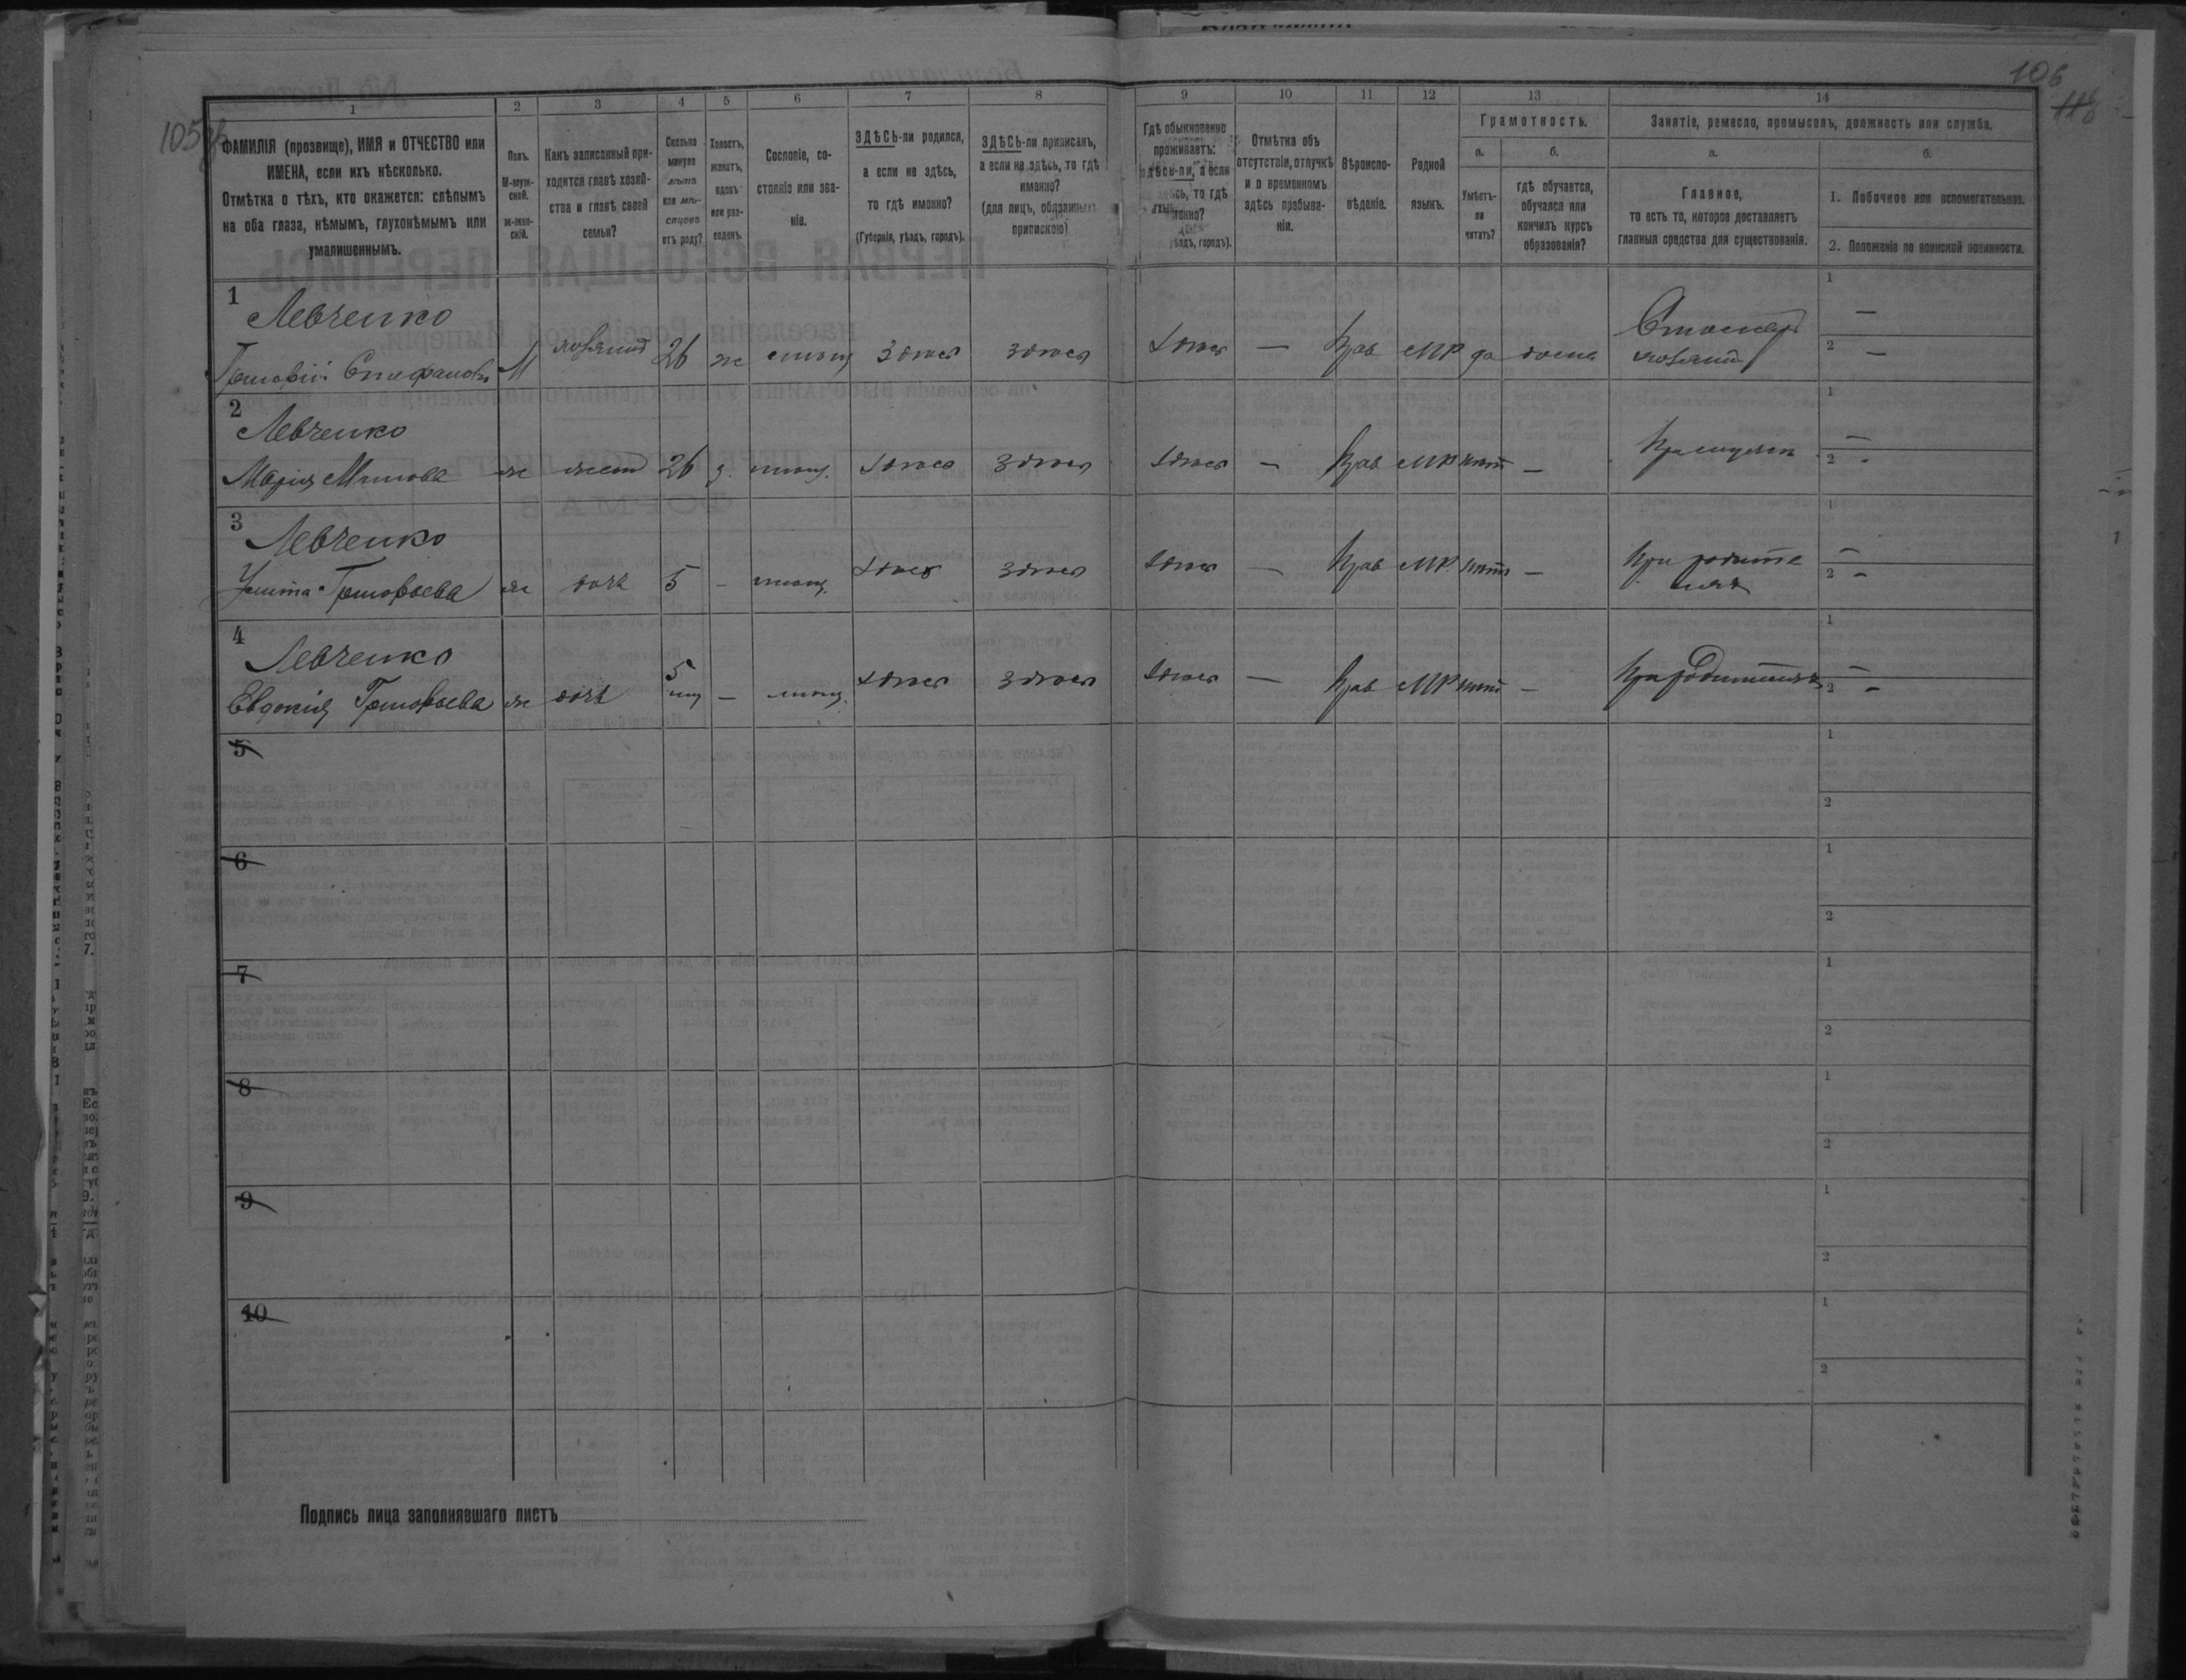 106
118
105
1
2
3
4
5
6
7
8
9
10
11
12
13
14
ФАМИЛІЯ (прозвище), ИМЯ и ОТЧЕСТВО или
ИМЕНА, если ихъ нѣсколько.
Отмѣтка о тѣхъ, кто окажется: слѣпымъ
на оба глаза, нѣмымъ, глухонѣмымъ или
умалишеннымъ.
Полъ.
М-муж-
ской.
Ж-жен-
скій.
Какъ записанный при-
ходится главѣ хозяй-
ства и главѣ своей
семьи?
Сколько
минуло
лѣтъ
или мѣ-
сяцевъ
отъ роду?
Холостъ,
женатъ,
вдовъ
или раз-
веденъ.
Сословіе, со-
стояніе или зва-
ніе.
ЗДѢСЬ-ли родился,
а если не здѣсь,
то гдѣ именно?
(Губернія, уѣздъ, городъ).
ЗДѢСЬ-ли приписанъ,
а если не здѣсь, то гдѣ
именно?
(для лицъ, обязанныхъ
припискою)
Гдѣ обыкновенно
проживаетъ:
здѣсь-ли, а если
не здѣсь, то гдѣ
именно?
уѣздъ, городъ).
Отмѣтка объ
отсутствіи, отлучкѣ
и о временномъ
здѣсь пребыва-
ніи.
Вѣроиспо-
вѣданіе.
Родной
языкъ.
Грамотность.
а.
Умѣетъ-
ли
читать?
б.
гдѣ обучается,
обучался или
кончилъ курсъ
образованія?
Занятіе, ремесло, промыселъ, должность или служба.
а.
Главное,
то есть то, которое доставляетъ
главныя средства для существованія.
б.
1. Побочное или вспомогательное.
2. Положеніе по воинской повинности.
1
Левченко
Григорій Стефановъ М хозяинъ 26 ж мѣщ здѣсь здѣсь здѣсь — Прав МР да дома
хозяинъ
1 —
2 —
2
Левченко
Марія ж жена 26 з. мѣщ. здѣсь здѣсь здѣсь — Прав МР нѣтъ —
При мужѣ
1 —
2 -
3
Левченко
Улита Григорьева ж дочь 5 - мѣщ. здѣсь здѣсь здѣсь — Прав МР. нѣтъ —
При родите
ляхъ
1 —
2 -
4
Левченко
Евдокія Григорьева ж дочь 5
мц — мѣщ. здѣсь здѣсь здѣсь — Прав МР нѣтъ —
При родителяхъ
1 —
2 -
5
1
2
6
1
2
7
1
2
8
1
2
9
1
2
10
1
2
Подпись лица заполнявшаго листъ